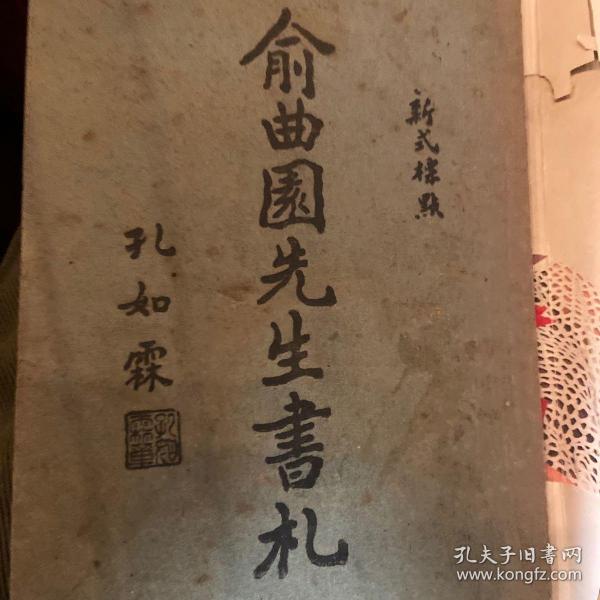 新式標點
俞曲園先生書札
孔如霖
孔夫子旧书网
www.kongfz.com